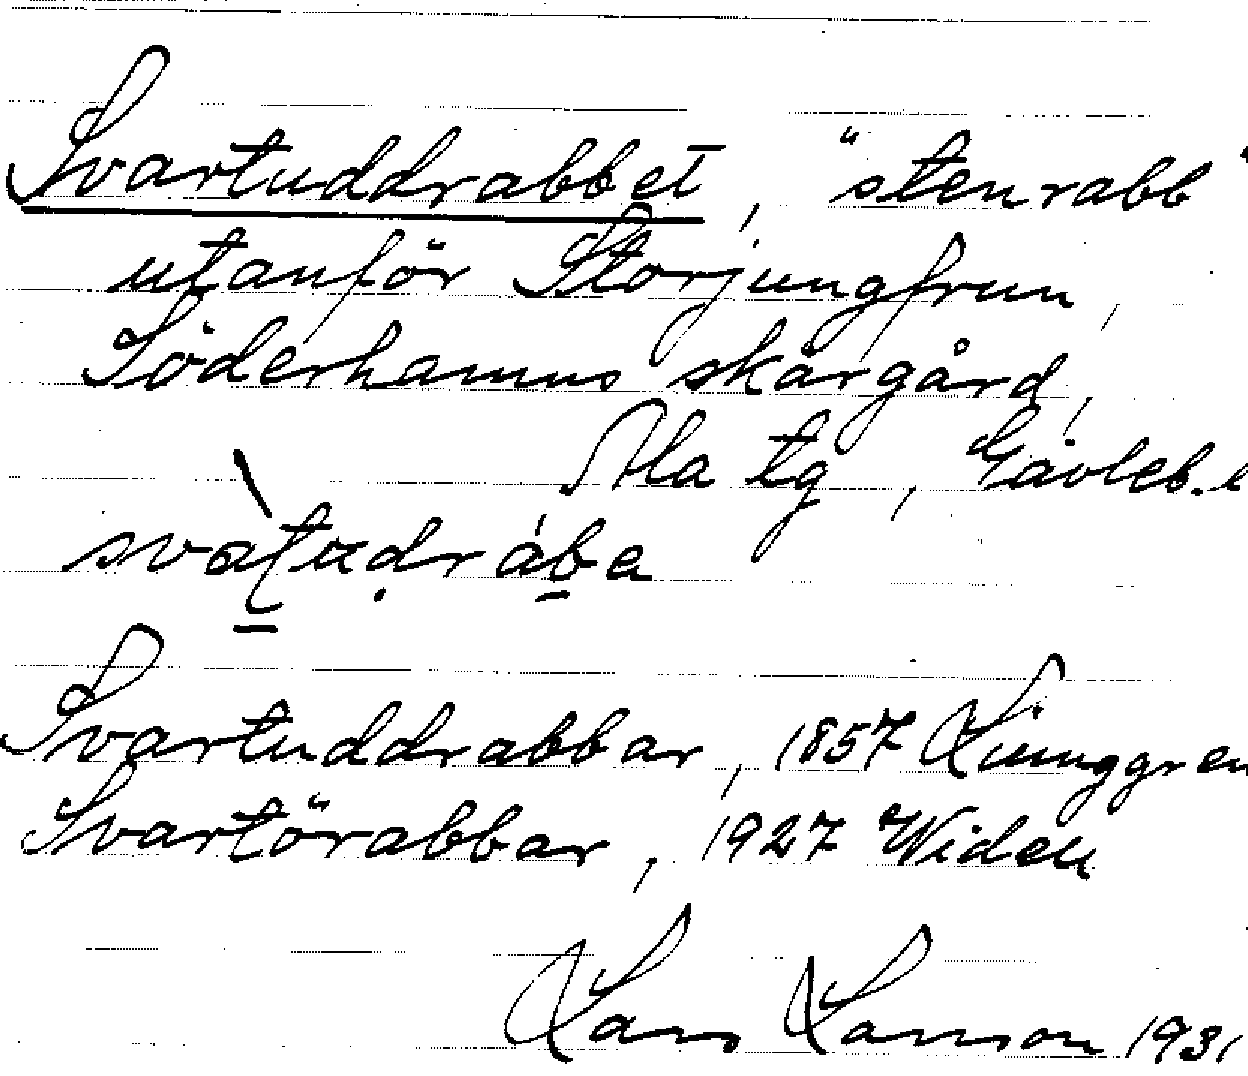 Svartuddrabbet, "stenrabb"
utanför Storjungfrun,
Söderhamns skärgård,
Ala tg, Gävleb. l
Svartuddrabbar, 1857 Ljunggren
Svartörabbar, 1927 Widen
Lars Larsson 1931